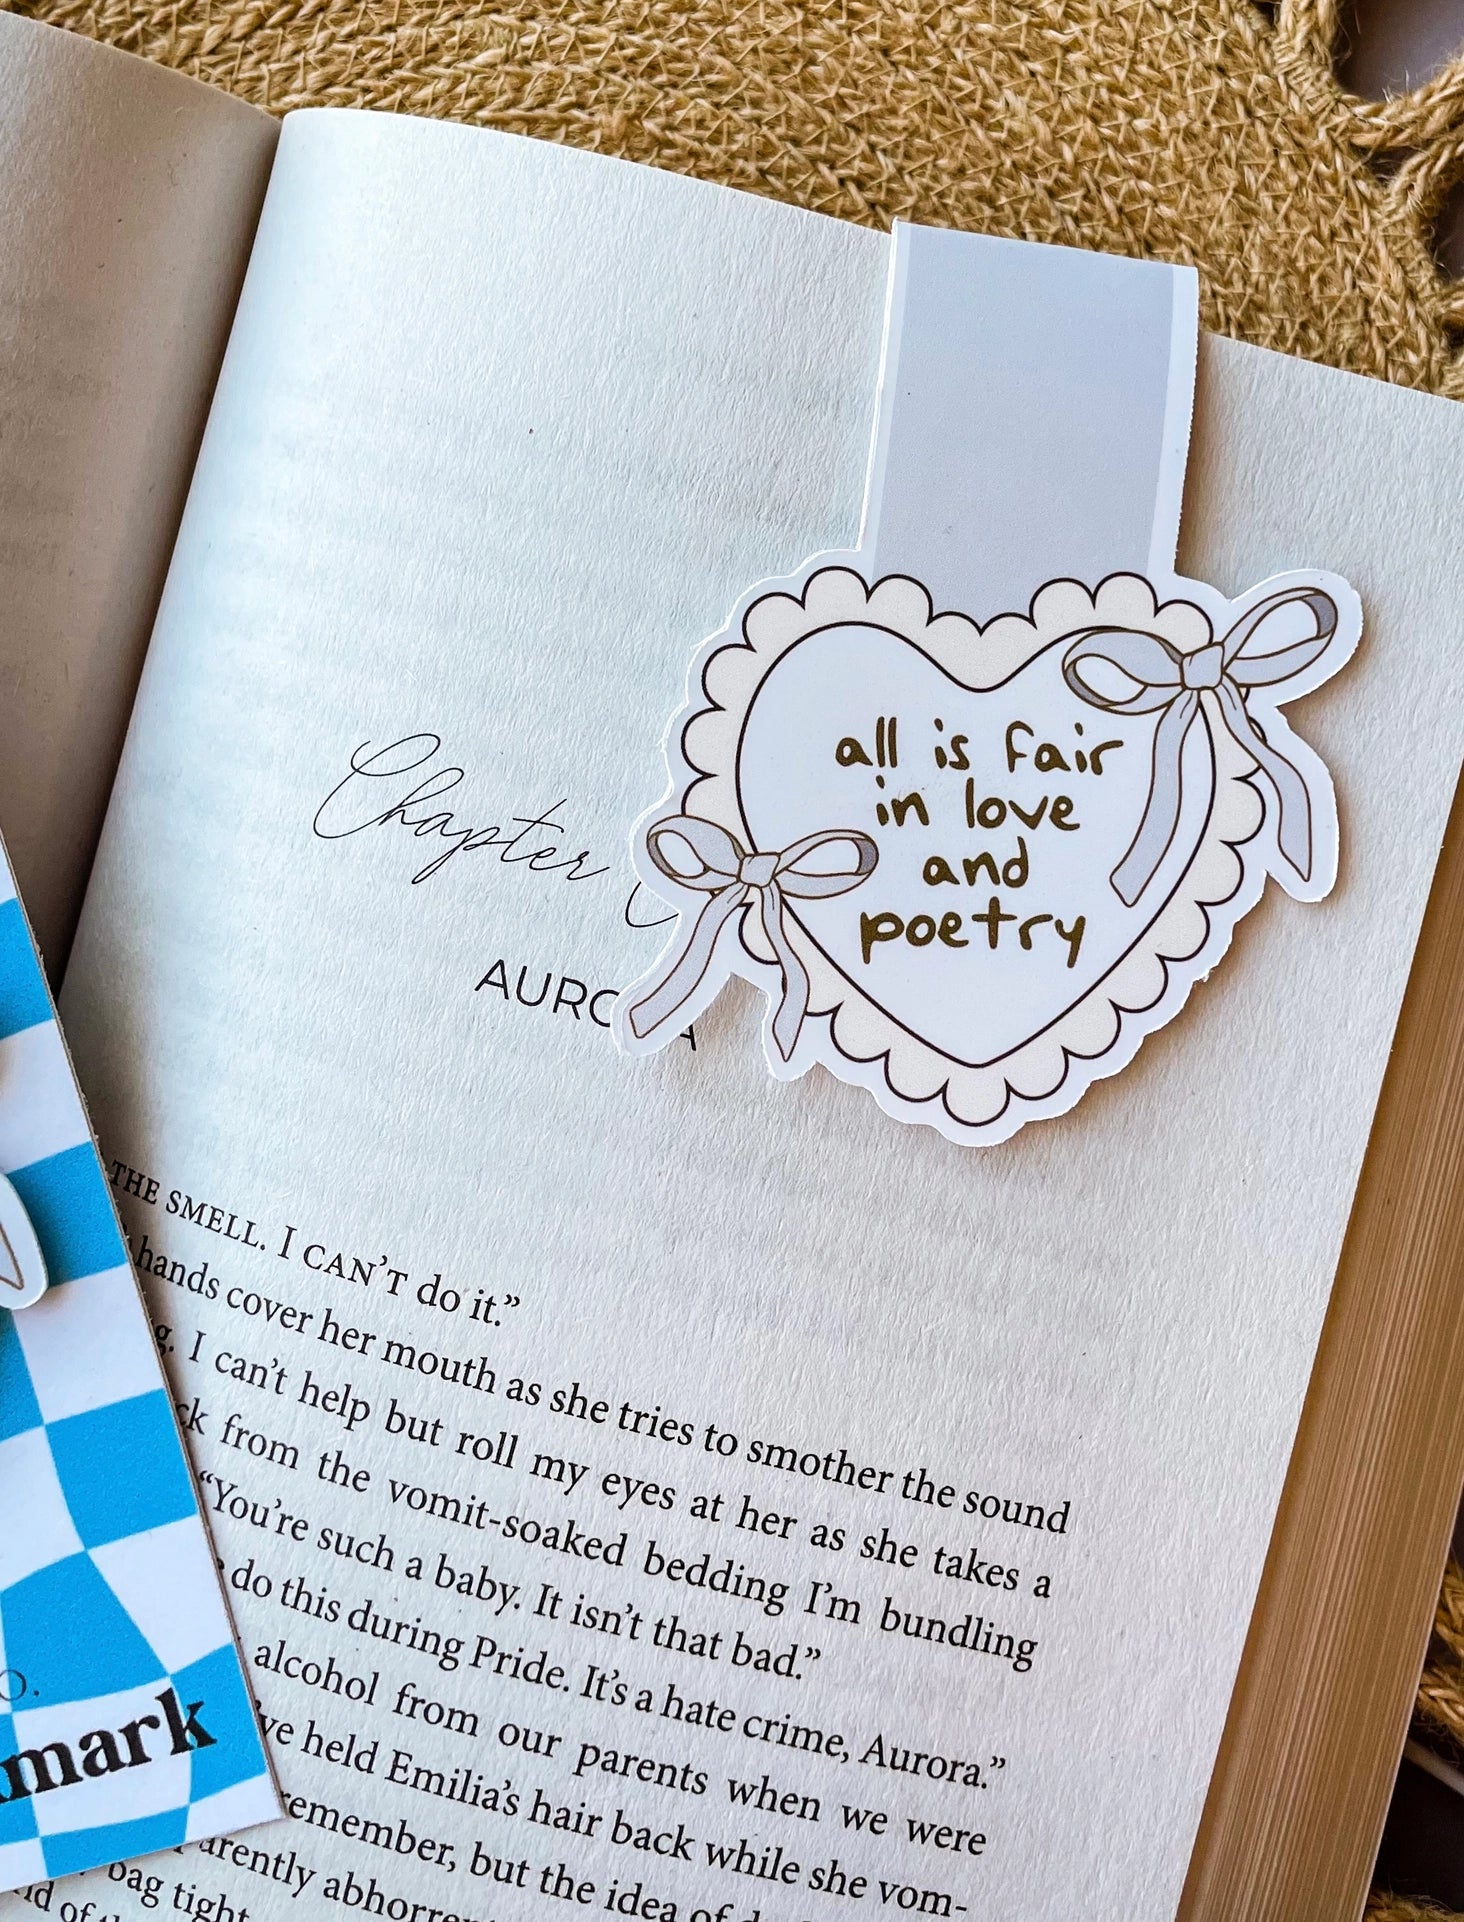 all is fair
in love
and
poetry
Chapter
THE SMELL. I CAN'T do it.”
hands cover her mouth as she tries to smother the sound
I can't help but roll my eyes at her as she takes a
from the vomit-soaked bedding I'm bundling
“You're such a baby. It isn't that bad.”
do this during Pride. It's a hate crime, Aurora.”
alcohol from our parents when we were
held Emilia's hair back while she vom-
remember, but the idea of
bag tight
mark